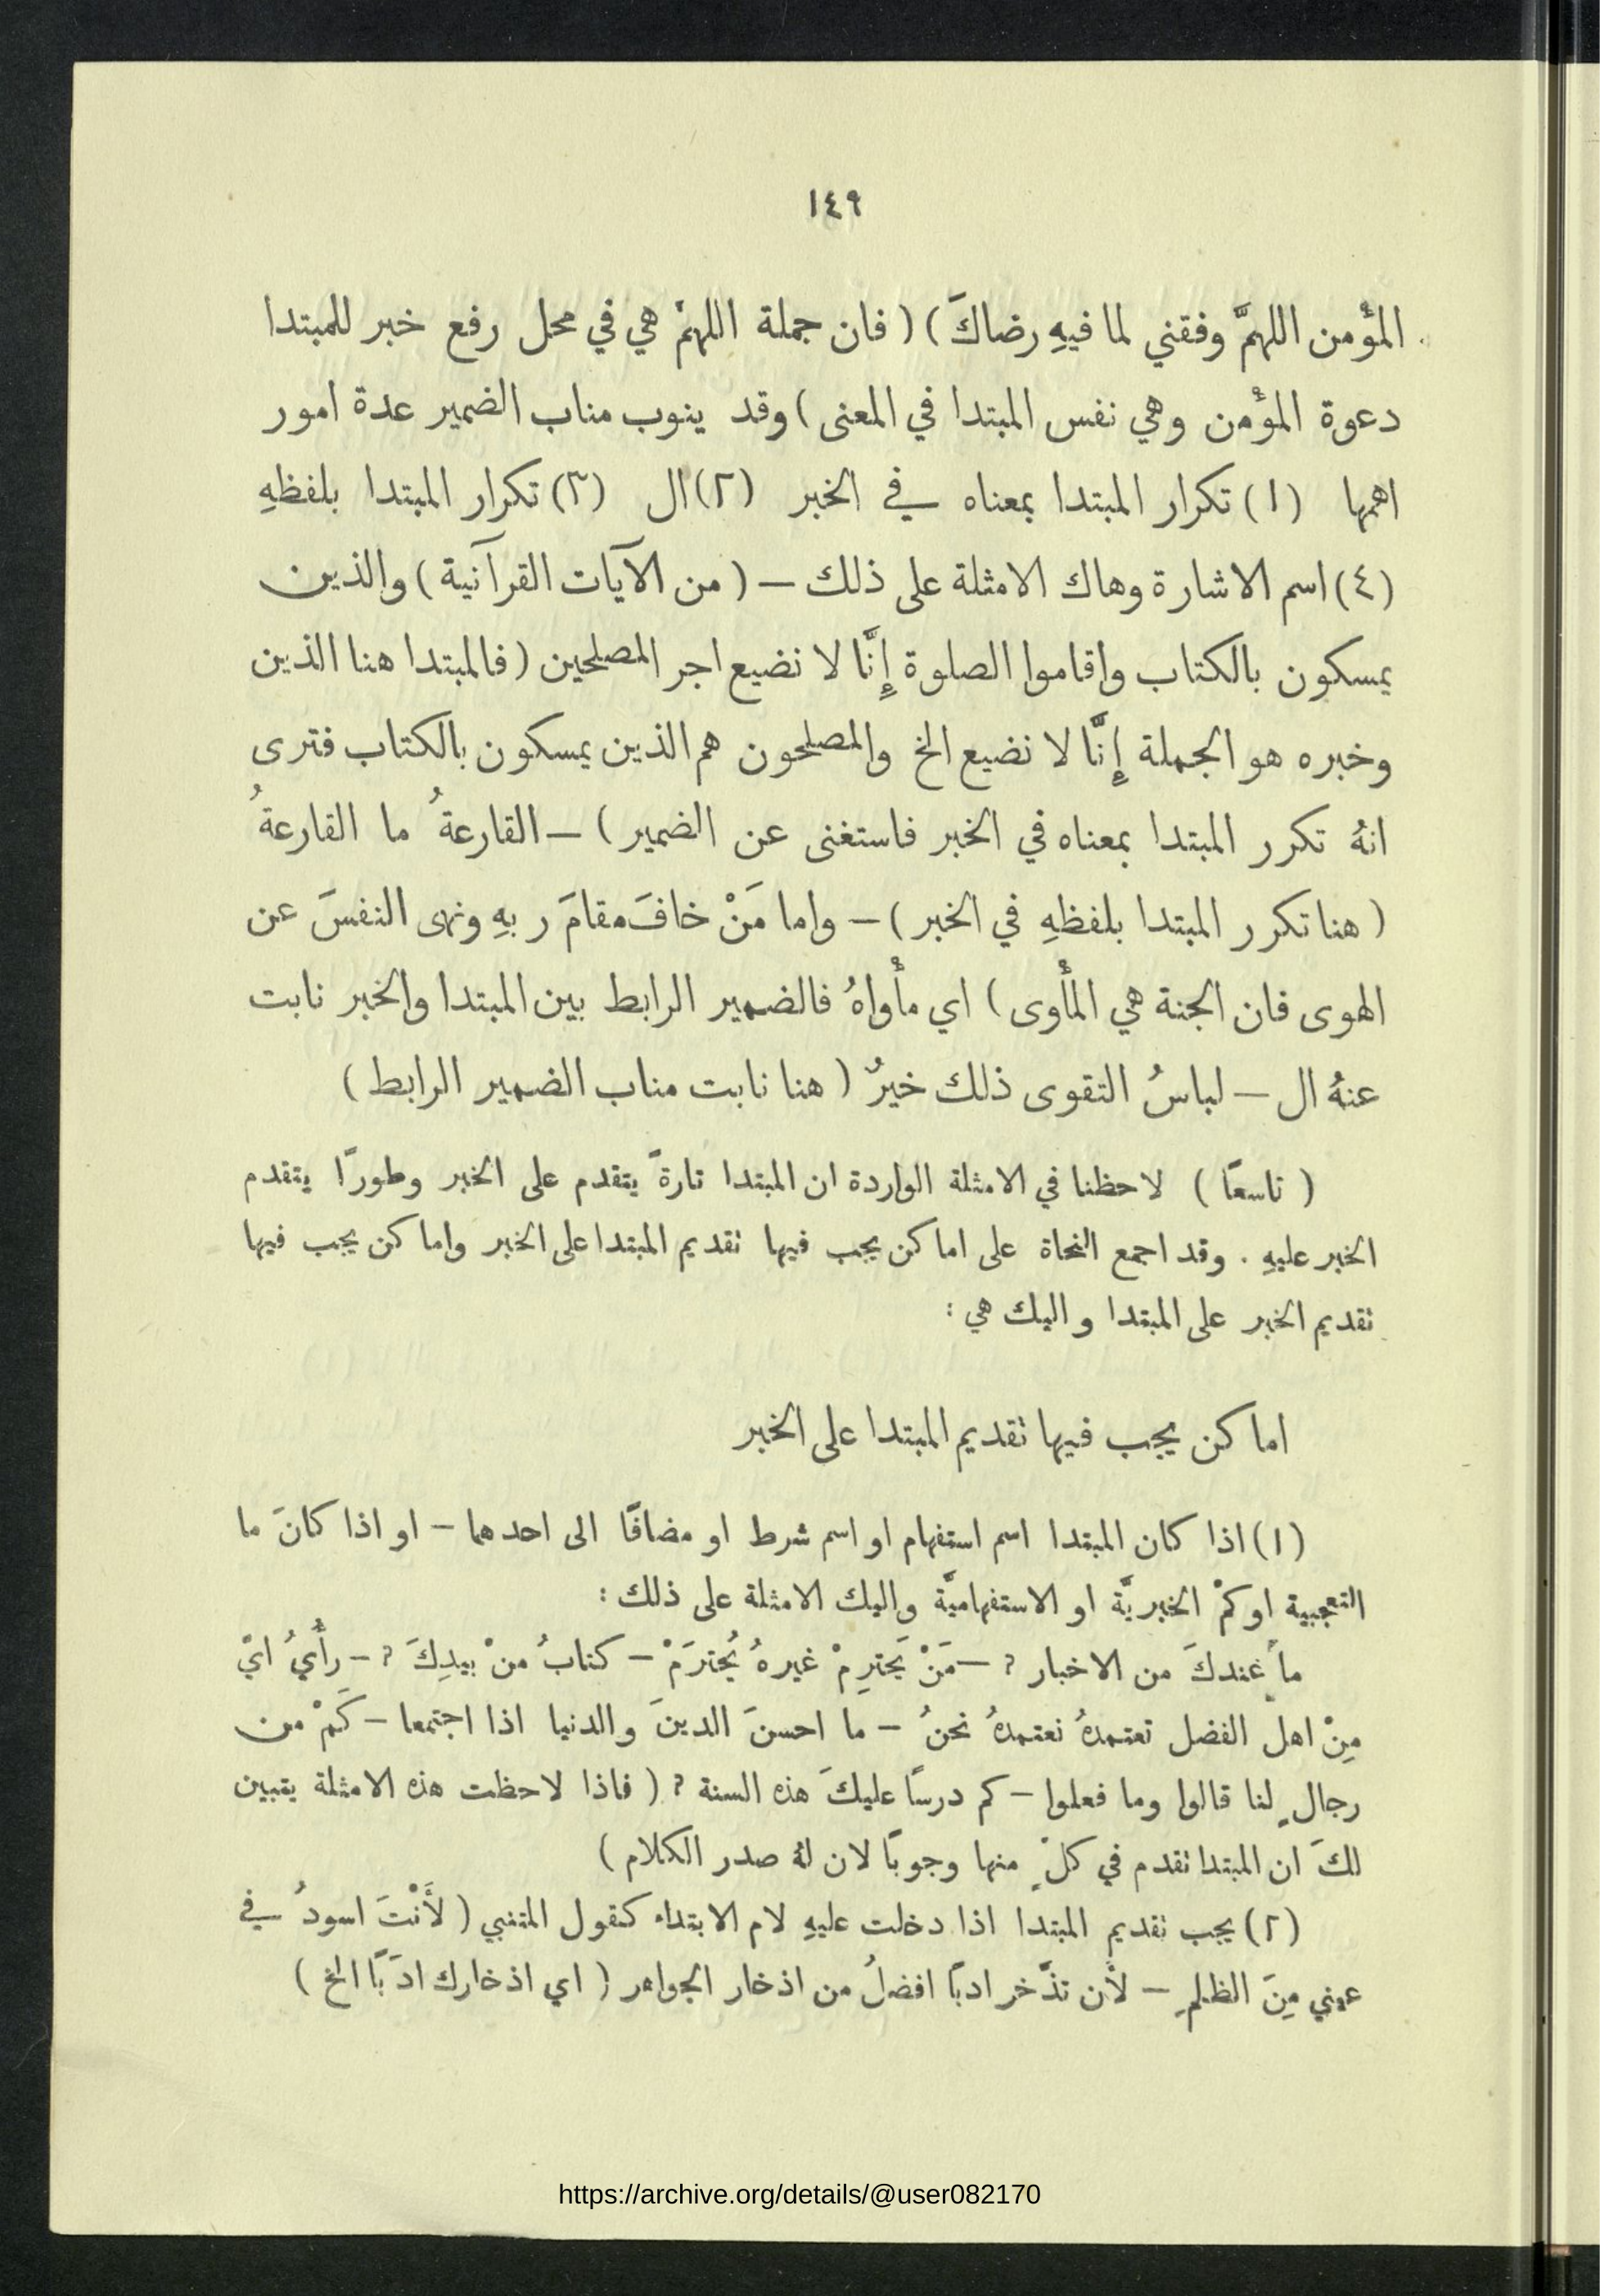 ١٤٩
المؤمن اللهمَّ وفقني لما فيهِ رضاكَ) (فان جملة اللهمَّ هي في محل رفع خبر للمبتدا
دعوة المؤمن وهي نفس المبتدا في المعنى) وقد ينوب مناب الضمير عدة امور
اهمها (١) تكرار المبتدا بمعناه في الخبر (٢) ال (٣) تكرار المبتدا بلفظهِ
(٤) اسم الاشارة وهاك الامثلة على ذلك – (من الآيات القرآنية) والذين
يمسكون بالكتاب واقاموا الصلوة إِنَّا لا نضيع اجر المصلحين (فالمبتدا هنا الذين
وخبره هو الجملة إِنَّا لا نضيع الخ والمصلحون هم الذين يمسكون بالكتاب فترى
انهُ تكرر المبتدا بمعناه في الخبر فاستغنى عن الضمير) – القارعةُ ما القارعةُ
(هنا تكرر المبتدا بلفظهِ في الخبر) – واما مَنْ خافَ مقامَ ربهِ ونهى النفسَ عن
الهوى فان الجنة هي المأوى) اي مأواهُ فالضمير الرابط بين المبتدا والخبر نابت
عنهُ ال – لباسُ التقوى ذلك خيرٌ (هنا نابت مناب الضمير الرابط)
(تاسعًا) لاحظنا في الامثلة الواردة ان المبتدا تارةً يتقدم على الخبر وطورًا يتقدم
الخبر عليهِ . وقد اجمع النحاة على اماكن يجب فيها تقديم المبتدا على الخبر واماكن يجب فيها
تقديم الخبر على المبتدا واليك هي :
اماكن يجب فيها تقديم المبتدا على الخبر
(١) اذا كان المبتدا اسم استفهام او اسم شرط او مضافًا الى احدهما – او اذا كانَ ما
التعجبية او كمْ الخبريَّة او الاستفهاميَّة واليك الامثلة على ذلك :
ما عندكَ من الاخبار ؟ – مَنْ يَحترِمْ غيرهُ يُحترَمْ – كتابُ منْ بيدِكَ ؟ – رأْيُ ايّ
مِنْ اهل الفضل تعتمدهُ نعتمدهُ نحنُ – ما احسنَ الدينَ والدنيا اذا اجتمعا – كَمْ من
رجالٍ لنا قالوا وما فعلوا – كم درسًا عليكَ هذه السنة ؟ (فاذا لاحظت هذه الامثلة يتبين
لكَ ان المبتدا تقدم في كلٍّ منها وجوبًا لان لهُ صدر الكلام)
(٢) يجب تقديم المبتدا اذا دخلت عليهِ لام الابتداء كقول المتنبي (لأَنْتَ اسودُ في
عيني مِنَ الظلمِ – لأن تذَّخر ادبًا افضلُ من اذخار الجواهر (اي اذخارك ادَبًا الخ)
https://archive.org/details/@user082170